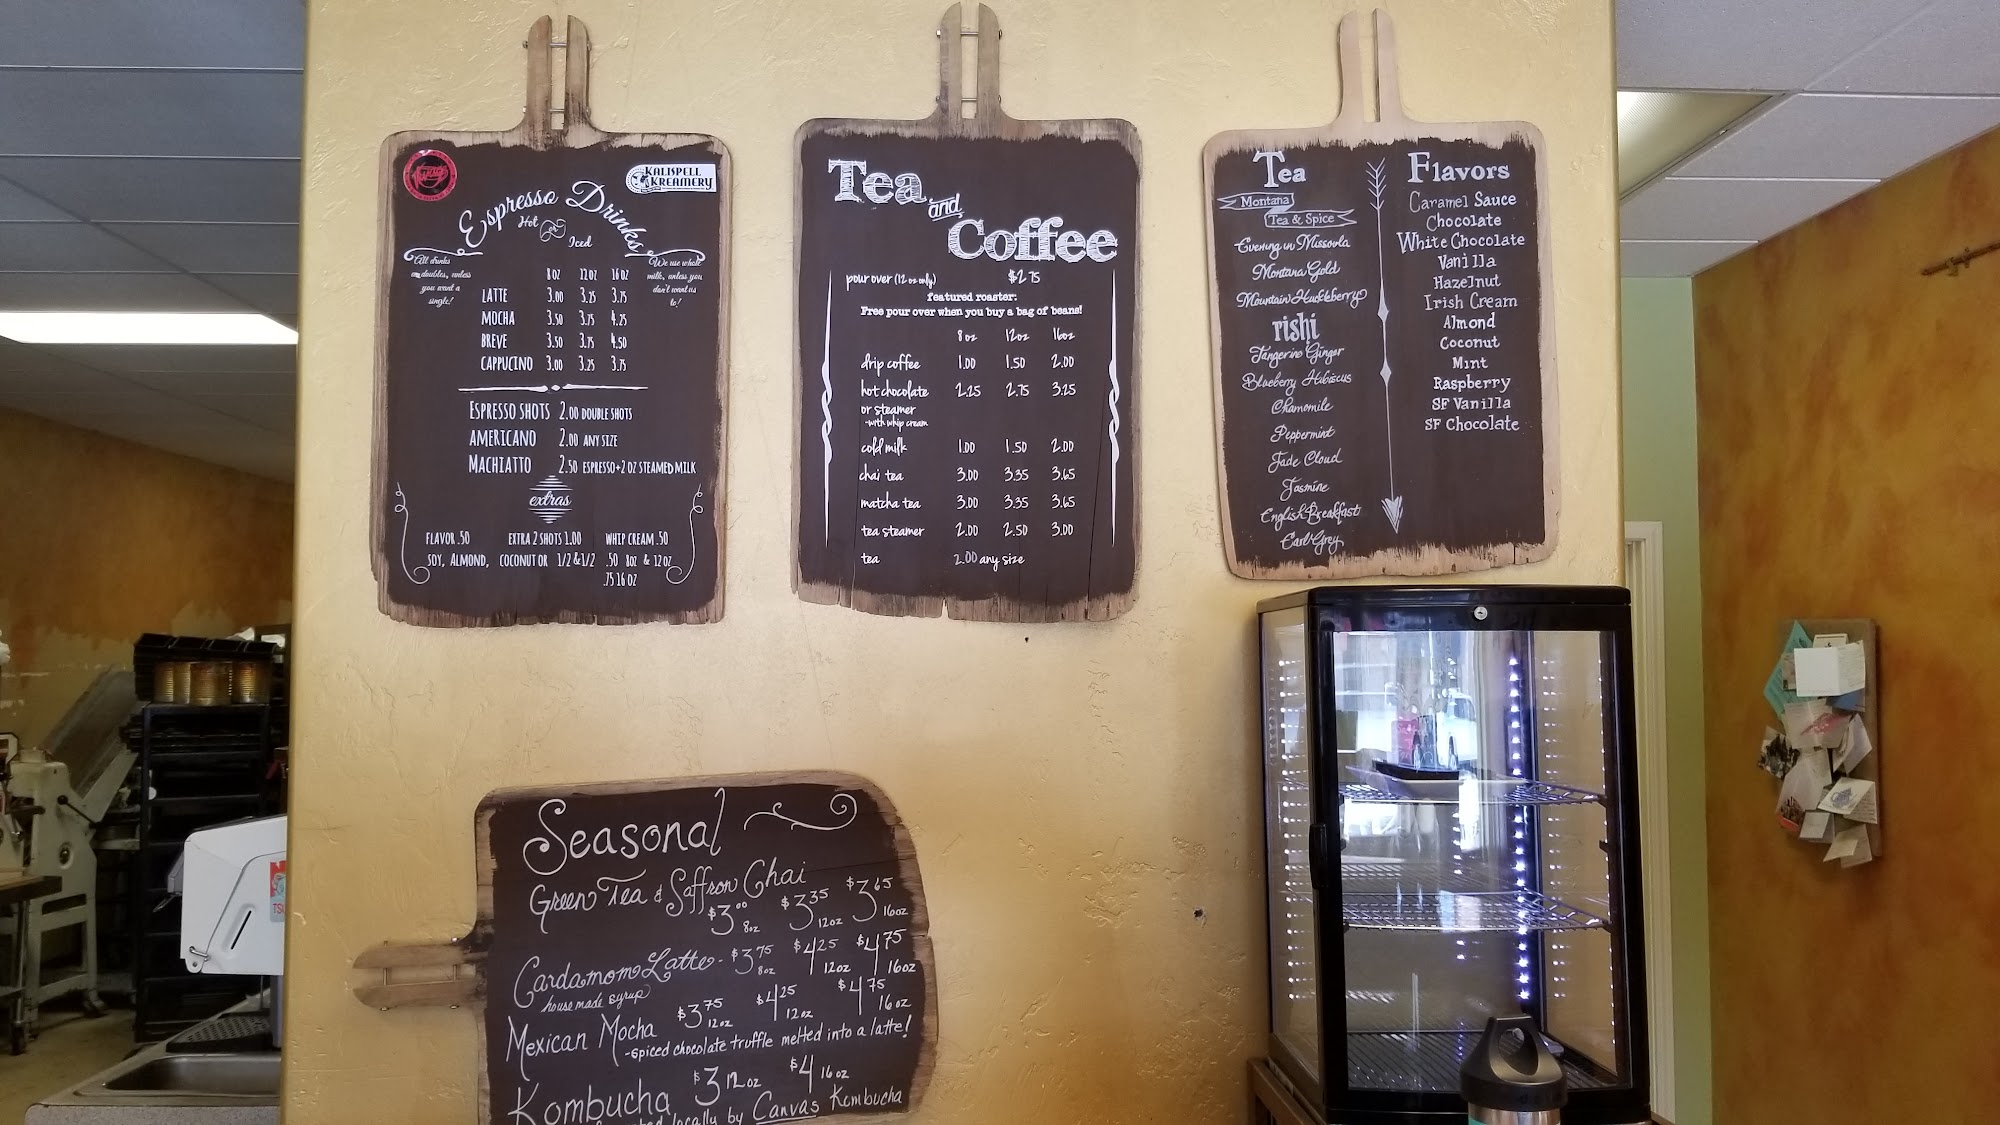 KALISPELL
KREAMERY
Espresso Drinks
Hot or Iced
All drinks
are doubles, unless
you want a
single!
We use whole
milk, unless you
don't want us
to!
8 OZ 12 OZ 16 OZ
LATTE 3.00 3.25 3.75
MOCHA 3.50 3.75 4.25
BREVE 3.50 3.75 4.50
CAPPUCINO 3.00 3.25 3.75
ESPRESSO SHOTS 2.00 DOUBLE SHOTS
AMERICANO 2.00 ANY SIZE
MACHIATTO 2.50 ESPRESSO+2 OZ STEAMED MILK
extras
FLAVOR .50 EXTRA 2 SHOTS 1.00 WHIP CREAM .50
SOY, ALMOND, COCONUT OR 1/2 & 1/2 .50 8OZ & 12 OZ
.75 16 OZ
Tea
and
Coffee
pour over (12 oz only) $2.75
featured roaster:
Free pour over when you buy a bag of beans!
8 oz 12oz 16oz
drip coffee 1.00 1.50 2.00
hot chocolate 2.25 2.75 3.25
or steamer
-with whip cream
cold milk 1.00 1.50 2.00
chai tea 3.00 3.35 3.65
matcha tea 3.00 3.35 3.65
tea steamer 2.00 2.50 3.00
tea 2.00 any size
Tea
Montana
Tea & Spice
Evening in Missoula
Montana Gold
Mountain Huckleberry
rishi
Tangerine Ginger
Blueberry Hibiscus
Chamomile
Peppermint
Jade Cloud
Jasmine
English Breakfast
Earl Grey
Flavors
Caramel Sauce
Chocolate
White Chocolate
Vanilla
Hazelnut
Irish Cream
Almond
Coconut
Mint
Raspberry
SF Vanilla
SF Chocolate
Seasonal
Green Tea & Saffron Chai
$3.00 8oz $3.35 12oz $3.65 16oz
Cardamom Latte - $3.75 8oz $4.25 12oz $4.75 16oz
house made syrup
Mexican Mocha $3.75 12oz $4.25 12oz $4.75 16oz
-spiced chocolate truffle melted into a latte!
Kombucha $3 12oz $4 16oz
locally by Canvas Kombucha